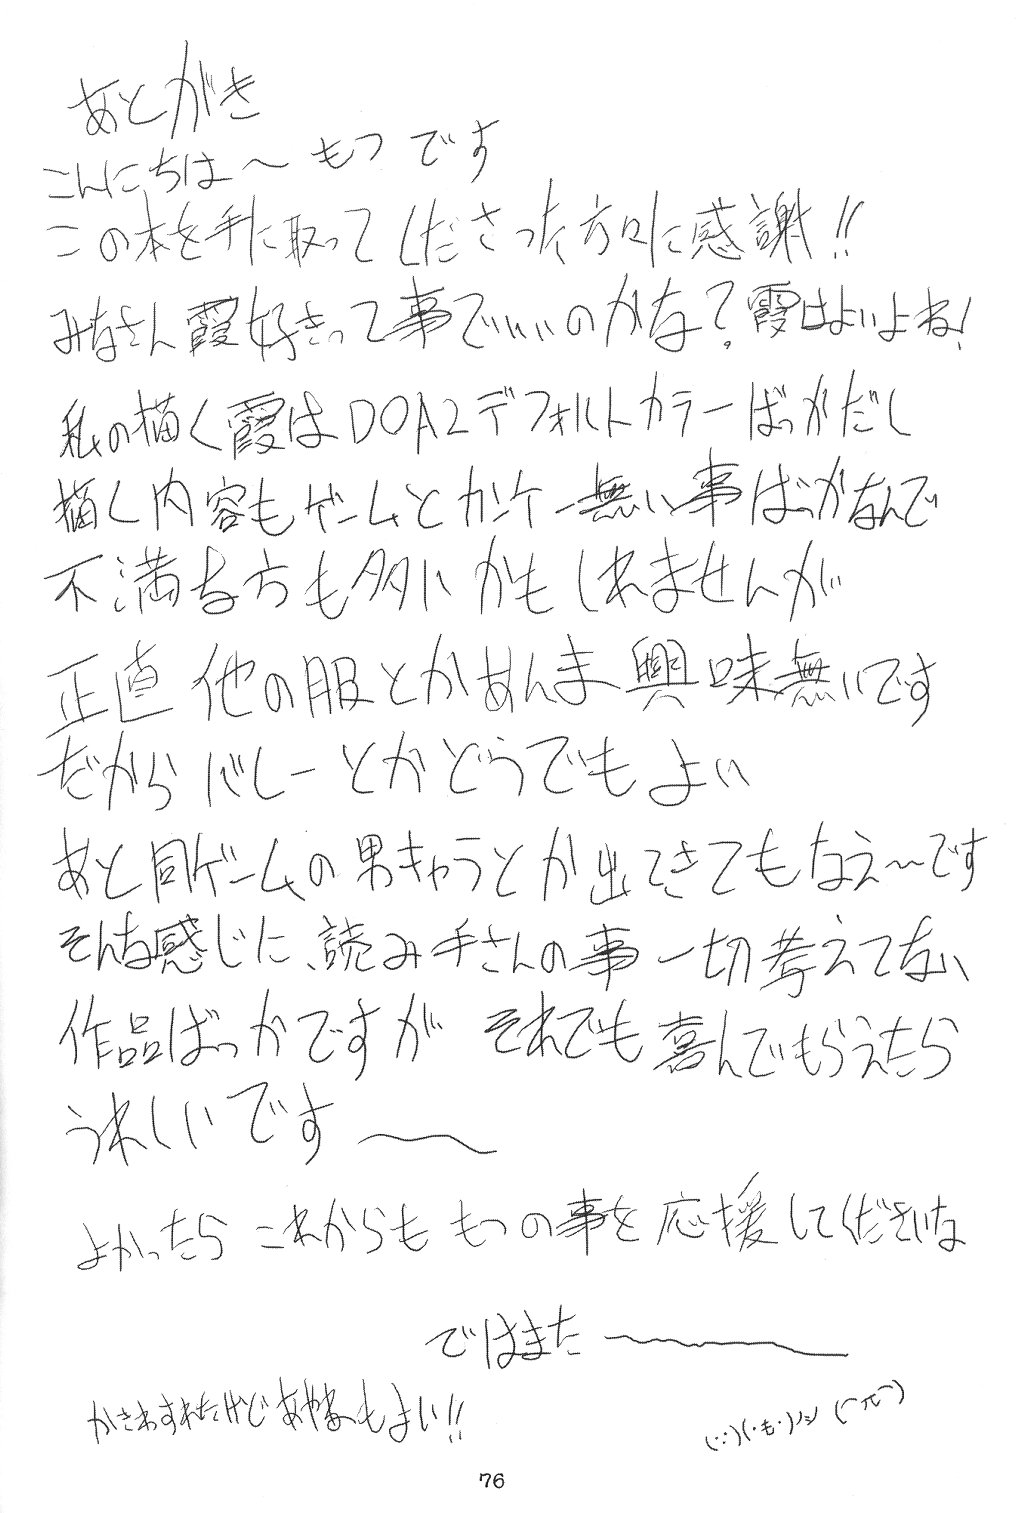 あとがき
こんにちは～ もつです
この本を手に取ってくださった方々に感謝!!
みなさん霞好きって事でいいのかな?霞はよいよね!
私の描く霞はDOA2デフォルトカラーばっかだし
描く内容もゲームとカンケー無い事ばっかなんで
不満な方も多いかもしれませんが
正直他の服とかあんま興味無いです
だからバレーとかどうでもよい
あと同ゲームの男キャラとか出てきてもなえ～です
そんな感じに、読み手さんの事一切考えてない
作品ばっかですが それでも喜んでもらえたら
うれしいです～
よかったら これからも もつの事を応援してくださいな
ではまた～
かきわすれたけどあやねもよい!!
76